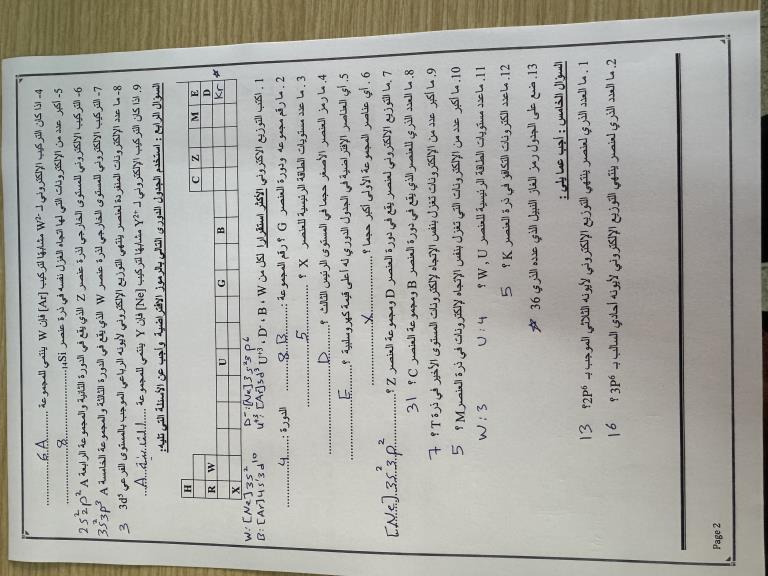 4- اذا كان التركيب الالكتروني لـ W²⁻ مشابها لتركيب [Ar] فإن W ينتمي للمجموعة ........ 6A
5- أكبر عدد من الإلكترونات التي لها اتجاه الغزل نفسه في ذرة عنصر ₁₄Si ........ 8
6- التركيب الإلكتروني للمستوى الخارجي لذرة عنصر Z الذي يقع في الدورة الثانية والمجموعة الرابعة A 2s² 2p²
7- التركيب الإلكتروني للمستوى الخارجي لذرة عنصر W الذي يقع في الدورة الثالثة والمجموعة الخامسة A 3s² 3p³
8- ما عدد الإلكترونات المنفردة لعنصر ينتهي التوزيع الإلكتروني لأيونه الرباعي الموجب بالمستوى الفرعي 3d³ 3
9. اذا كان التركيب الالكتروني لـ Y²⁺ مشابها لتركيب [Ne] فإن Y ينتمي للمجموعة ........ الثانية A
السؤال الرابع : استخدم الجدول الدوري التالي بالرموز الافتراضية وأجب عن الأسئلة التي تليه:
H
C Z M E
R W D
U G B Kr
X
1. اكتب التوزيع الالكتروني الأكثر استقرارا لكل من U⁺³ ، D⁻ ، B ، W
W: [Ne] 3s² D⁻: [Ne] 3s² 3p⁶
B: [Ar] 4s¹ 3d¹⁰ U⁺³: [Ar] 3d³
2. ما رقم مجموعة ودورة العنصر G ؟ رقم المجموعة : 8B الدورة : 4
3. ما عدد مستويات الطاقة الرئيسية للعنصر X ؟ 5
4. ما رمز العنصر الأصغر حجما في المستوى الرئيس الثالث ؟ D
5. أي العناصر الافتراضية في الجدول الدوري له أعلى قيمة كهروسلبية ؟ E
6. أي عناصر المجموعة الأولى أكبر حجما ؟ X
7. ما التوزيع الإلكتروني لعنصر يقع في دورة العنصر D ومجموعة العنصر Z ؟ [Ne] 3s² 3p²
8. ما العدد الذري للعنصر الذي يقع في دورة العنصر B ومجموعة العنصر C ؟ 31
9. ما أكبر عدد من الإلكترونات تغزل بنفس الإتجاه لإلكترونات المستوى الأخير في ذرة T ؟ 7
10. ما أكبر عدد من الإلكترونات التي تغزل بنفس الإتجاه لإلكترونات في ذرة العنصر M ؟ 5
11. ما عدد مستويات الطاقة الرئيسية للعنصر W , U ؟ W: 3 U: 4
12. ما عدد الكترونات التكافؤ في ذرة العنصر K ؟ 5
13. ضع على الجدول رمز الغاز النبيل الذي عدده الذري 36
السؤال الخامس : اجب عما يلي :
1. ما العدد الذري لعنصر ينتهي التوزيع الإلكتروني لأيونه الثلاثي الموجب بـ 2P⁶ ؟ 13
2. ما العدد الذري لعنصر ينتهي التوزيع الإلكتروني لأيونه احادي السالب بـ 3P⁶ ؟ 16
Page 2